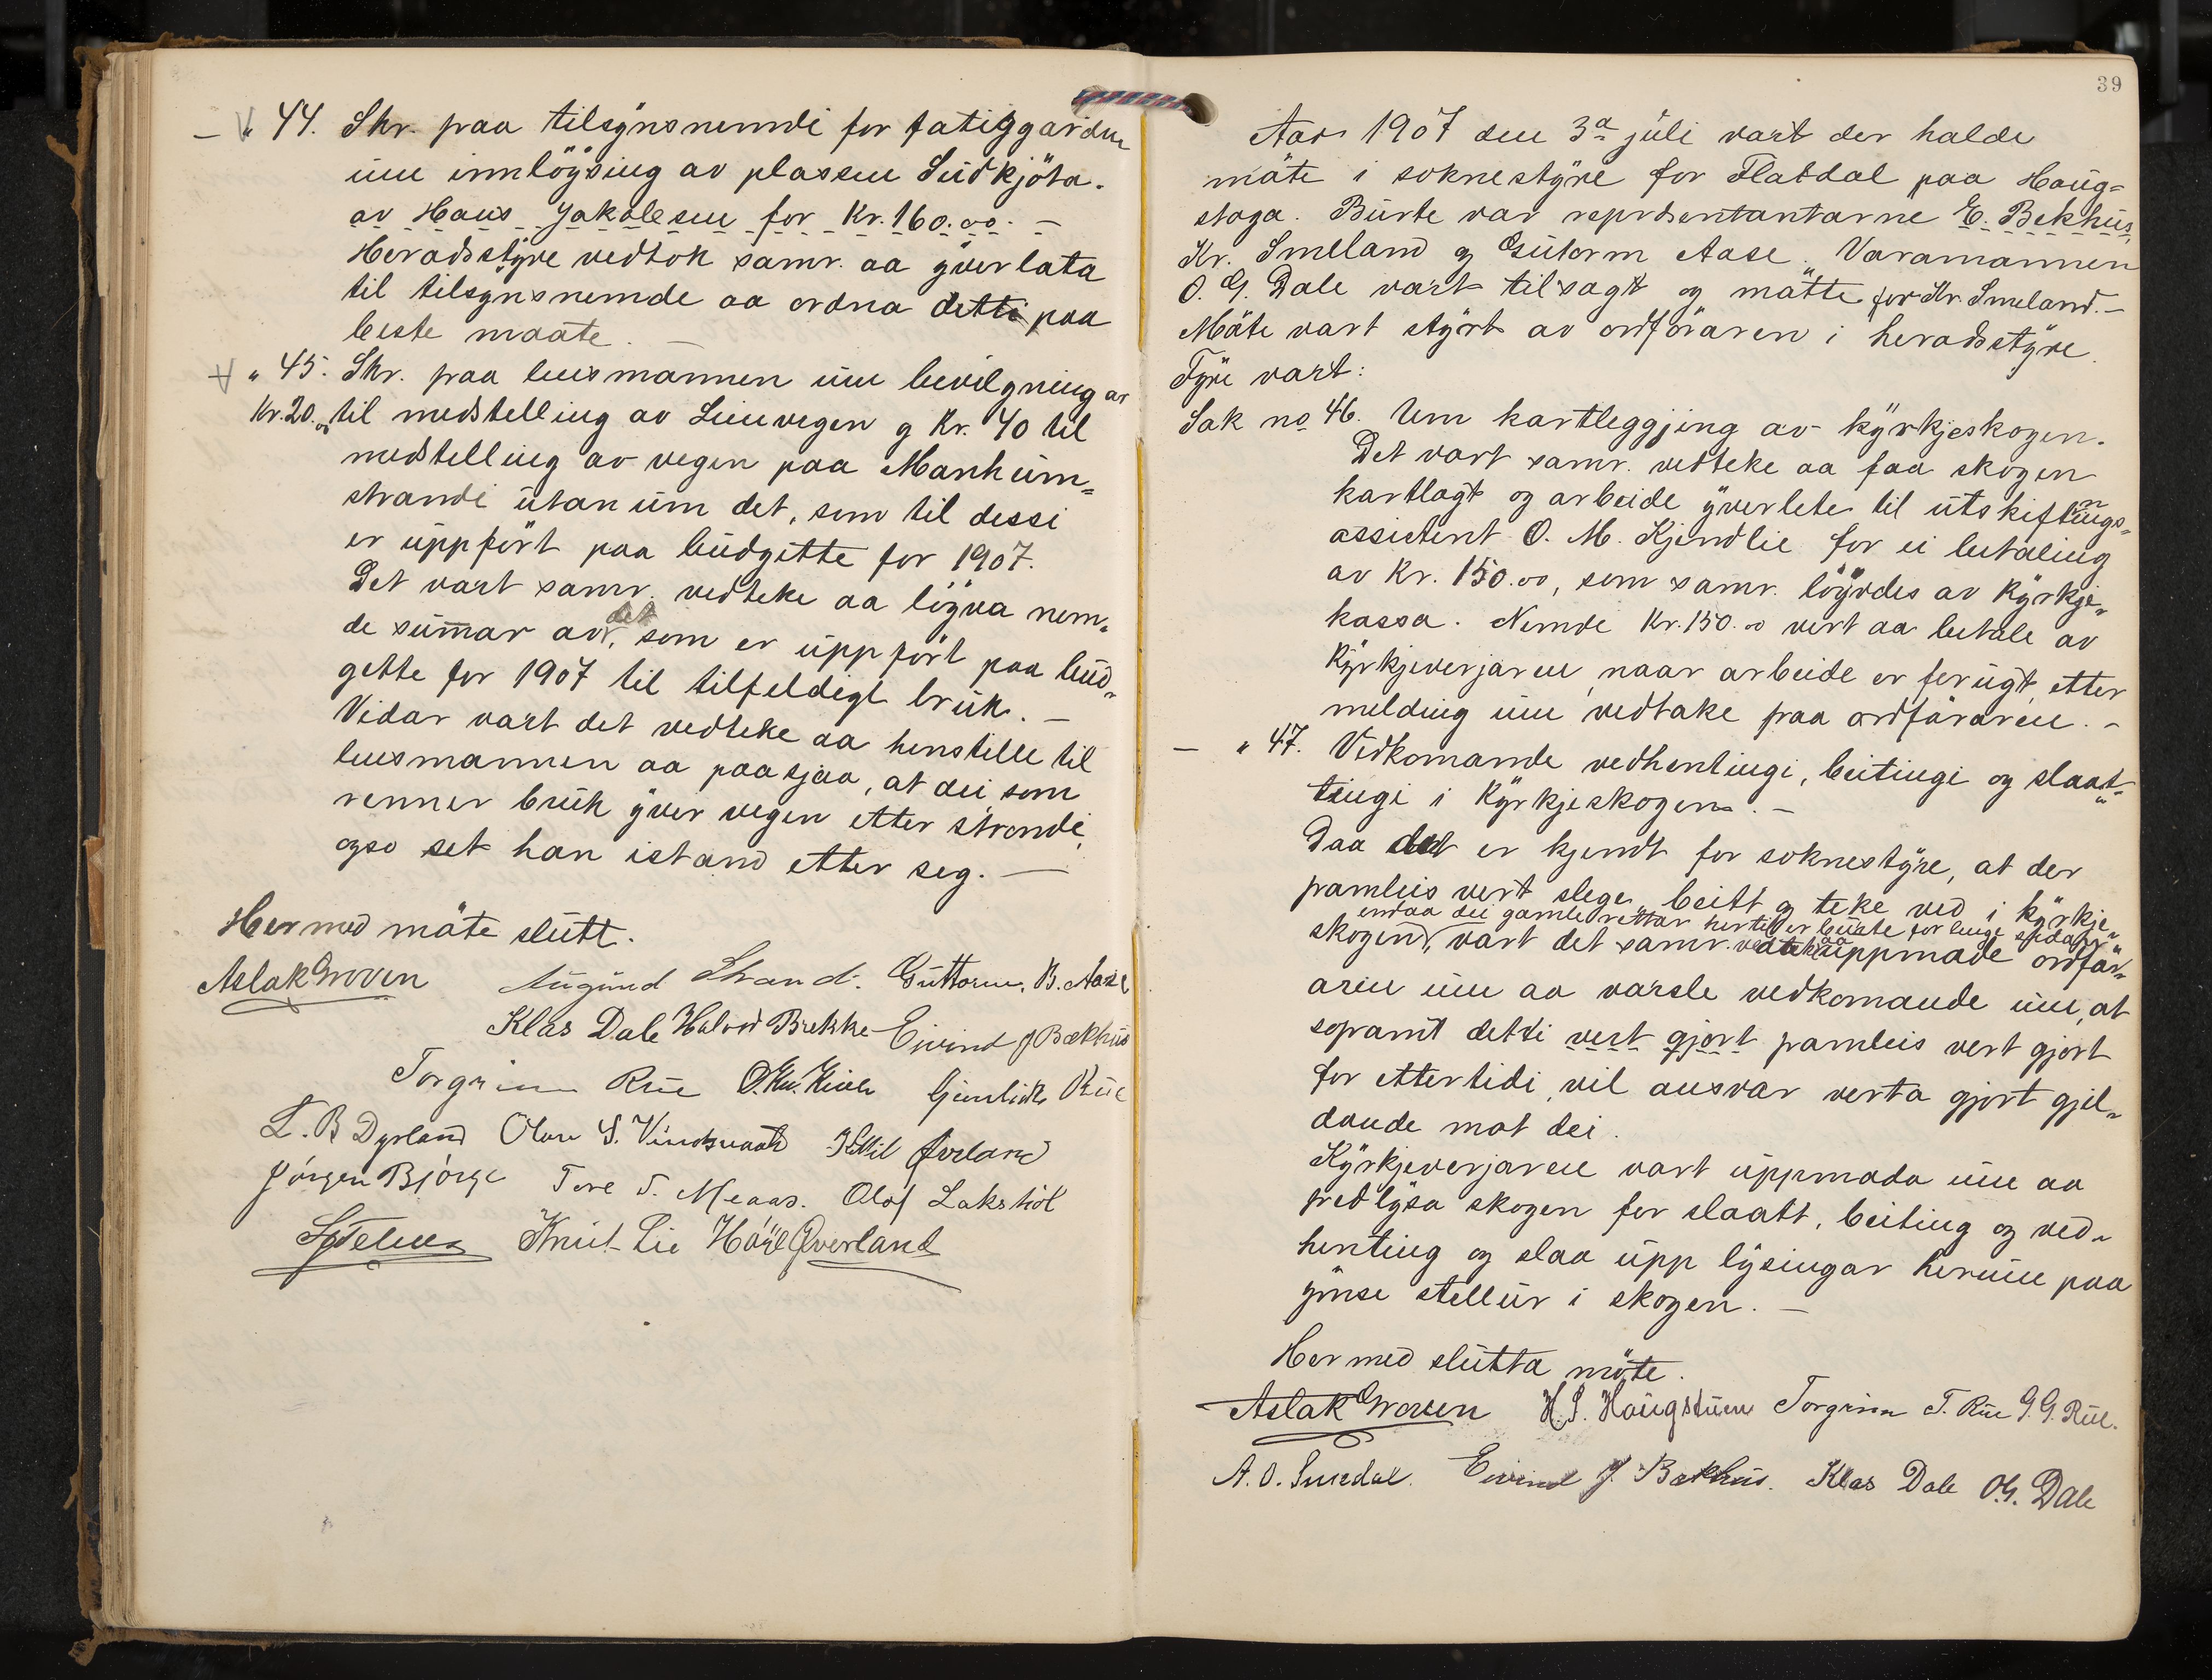 — " 44. Skr. paa tilsynsnemdi for fatiggarden
um innlöysing av plassen Sudkjöta.
av Hans Jakobsen for Kr. 160.00. —
Heradsstyre vedtok samr. aa yverlata
til tilsynsnemde aa ordna detti paa
beste maate. —
" 45. Skr. paa lensmannen um bevilgning av
Kr. 20.00 til medstelling av Lievegen og Kr. 40 til
medstelling av vegen paa Manheim-
strandi utanum det, som til dessi
er uppfört paa budgette for 1907.
Det vart samr. vedteke aa löyva nem-
de summar av det, som er uppfört paa bud-
gette for 1907 til tilfeldigt bruk. —
Vidar vart det vedteke aa henstille til
lensmannen aa paasjaa, at dei, som
renner bruk yver vegen etter strondi,
ogso set han istand etter seg. —
Hermed möte slutt.
Aslak Groven Augund Strand. Guttorm. B. Aase
Klas Dale Halvor Brekke Eivind J Bækhus
Torgrim Rue Gunleik Rue
L. B Dyrland Olav S. Vindsvaad Kittil Øverland
Jörgen Björge Tore T. Meaas. Olaf Lakshol
Knut Lie Høye Øverland
39
Aar 1907 den 3a juli vart der halde
möte i soknestyre for Flatdal paa Haug-
stoga. Burte var reprdsentantarne E. Bekhus,
Kr. Smeland og Gutorm Aase. Varamannen
O. G. Dale vart tilsagt og mötte for Kr. Smeland. —
Möte vart styrt av ordföraren i heradsstyre.
Fyre vart:
Sak no 46. Um kartleggjing av kyrkjeskogen.
Det vart samr. vedteke aa faa skogen
kartlagt og arbeide yverlete til utskiftnings-
assistent O. M. Kjendlie for ei betaling
av Kr. 150.00, som samr. löyvdes av kyrkje-
kassa. Nemde Kr. 150.00 vert aa betale av
kyrkjeverjaren, naar arbeide er ferugt, etter
melding um vedtake paa ordföraren. —
— " 47. Vidkomande vedhentingi, beitingi og slaat-
tingi i kyrkjeskogen. —
Daa det er kjendt for soknestyre, at der
framleis vert slege, beitt og teke ved i kyrkje-
endaa dei gamle rettar hertil er burte for lenge sidan
skogen, vart det samr. vedteke aa uppmode ordför-
aren um aa varsle vedkomande um, at
soframt detti vert gjort framleis vert gjort
for ettertidi, vil ansvar verta gjort gjel-
dande mot dei.
Kyrkjeverjaren vart uppmoda um aa
fredlysa skogen for slaatt, beiting og ved-
henting og slaa upp lysingar herum paa
ymse stellur i skogen. —
Hermed slutta möte.
Aslak Groven H. S. Haugstuen Torgrim T. Rue G. G. Rue.
A. O. Sundal. Eivind J. Bækhus. Klas Dale O. G. Dale